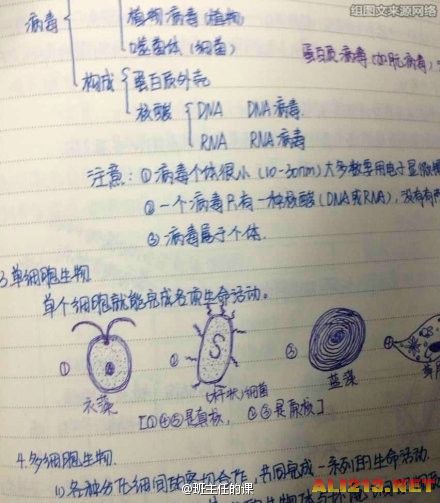 组图文来源网络
病毒
植物病毒(植物)
噬菌体(细菌)
蛋白质病毒(如朊病毒)
构成
蛋白质外壳
核酸
DNA DNA病毒
RNA RNA病毒
注意:①病毒个体很小(10-30nm)大多数要用电子显微
②一个病毒只有一种核酸(DNA或RNA),没有
③病毒属于个体.
3.单细胞生物
单个细胞就能完成各项生命活动。
① ② S ③ ④
衣藻 (杆状)细菌 蓝藻 草履
[①④⑤是真核, ②③是原核]
4.多细胞生物.
(1)各种分化细胞间的密切合作,共同完成一系列的生命活动.
@班主任的课
ALI213.NET